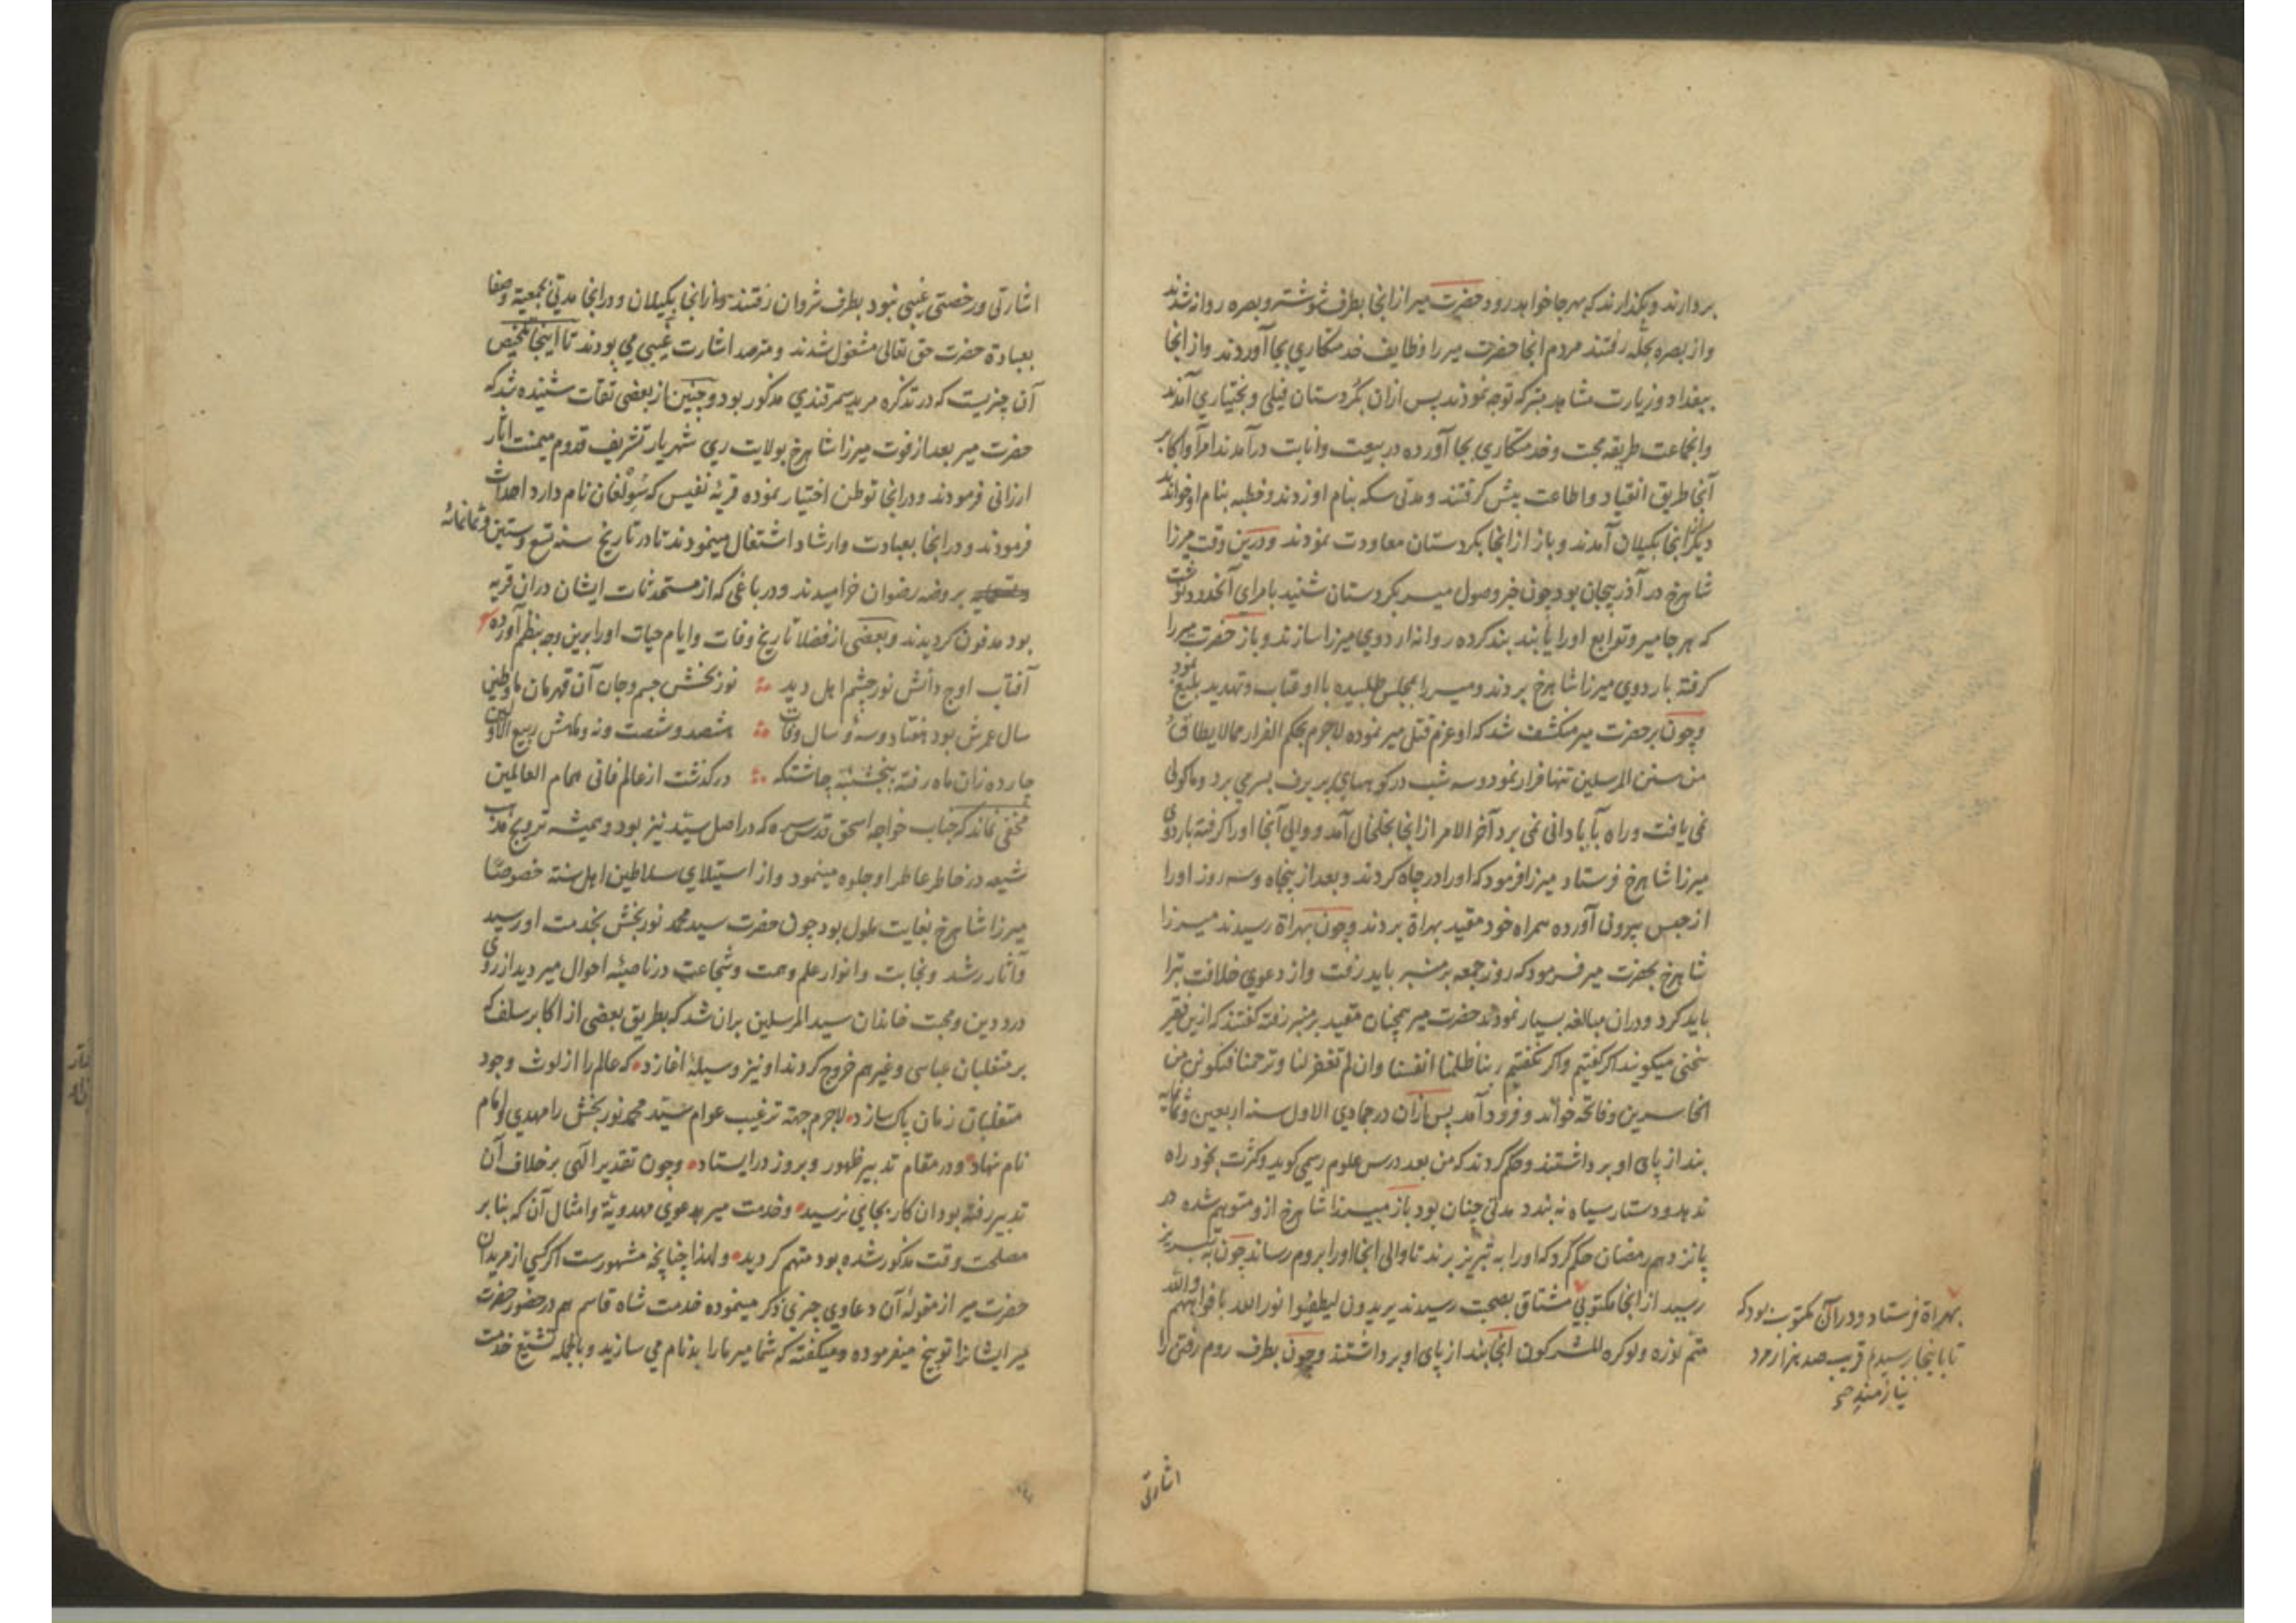 بردارند و بگذارند که بهر جا خواهد رود حضرت میر از انجا بطرف شوشتر و بصره روانه شدند
و از بصره بحله رفتند مردم انجا حضرت میر را وظایف خدمتکاری بجا آوردند و از انجا
ببغداد و زیارت مشاهد متبرکه توجه نمودند پس ازان بکردستان فیلی و بختیاری آمدند
و انجماعت طریقه محبت و خدمتکاری بجا آورده در بیعت و انابت درآمدند امرآ و اکابر
آنجا طریق انقیاد و اطاعت پیش گرفتند و مدتی سکه بنام او زدند و خطبه بنام او خواندند
دیگر از انجا بکیلان آمدند و باز از انجا بکردستان معاودت نمودند و درین وقت میرزا
شاهرخ در آذربیجان بود چون خبر وصول میر بکردستان شنید بامرای آنحدود نوشت
که هر جا میر و توابع او را یابند بند کرده روانه اردوی میرزا سازند و باز حضرت میر را
گرفته باردوی میرزا شاهرخ بردند و میر را بمجلس طلبیده با او عتاب و تهدید بلیغ نمود
و چون بر حضرت میر منکشف شد که او عزم قتل میر نموده لاجرم بحکم الفرار مما لا یطاق
من سنن المرسلین تنها فرار نمود و سه شب در کوههای پر برف بسر می برد و ماکولی
نمی یافت و راه بآبادانی نمی برد آخر الامر از انجا بخلخال آمد و والی آنجا او را گرفته باردوی
میرزا شاهرخ فرستاد میرزا فرمود که او را در چاه کردند و بعد از پنجاه و سه روز او را
از حبس بیرون آورده همراه خود مقید بهراة بردند و چون بهراة رسیدند میرزا
شاهرخ بحضرت میر فرمود که روز جمعه بر منبر باید رفت و از دعوی خلافت تبرا
باید کرد و دران مبالغه بسیار نمودند حضرت میر همچنان مقید بر منبر رفته گفتند که ازین فقیر
سخنی میگویند اگر گفتیم و اگر نگفتیم ربنا ظلمنا انفسنا وان لم تغفر لنا وترحمنا فنکونن من
الخاسرین و فاتحه خواند و فرود آمد پس ازان در جمادی الاول سنه اربعین و ثمانمایه
بند از پای او برداشتند و حکم کردند که من بعد درس علوم رسمی گوید و کثرت بخود راه
ندهد و دستار سیاه نه بندد مدتی چنان بود باز میرزا شاهرخ ازو متوهم شده در
پانزدهم رمضان حکم کرد که او را به تبریز برند تا والی انجا او را بروم رساند چون به تبریز
رسید از انجا مکتوبی مشتاق بصحبت رسیدند یریدون لیطفئوا نور الله بافواههم والله
متم نوره ولو کره المشرکون انجا بند از پای او برداشتند و چون بطرف روم رفتن را
بهراة فرستاد و در آن مکتوب بود که
تا باینجا رسیدم قریب صد هزار مرد
نیازمند صح
اشارتی
اشارتی و رخصتی غیبی نبود بطرف شروان رفتند و از انجا بکیلان و در انجا مدتی بجمعیة و صفا
بعبادة حضرت حق تعالی مشغول شدند و مترصد اشارت غیبی می بودند تا اینجا تلخیص
آن چیزیست که در تذکره مرید سمرقندی مذکور بود و چنین از بعضی ثقات شنیده شد که
حضرت میر بعد از فوت میرزا شاهرخ بولایت ری شهریار تشریف قدوم میمنت آثار
ارزانی فرمودند و در انجا توطن اختیار نموده قریهٔ نفیس که سولغان نام دارد احداث
فرمودند و در انجا بعبادت و ارشاد اشتغال مینمودند تا در تاریخ سنه تسع و ستین و ثمانمائه
بروضه رضوان خرامیدند و در باغی که از مستحدثات ایشان دران قریه
بود مدفون گردیدند و بعضی از فضلا تاریخ وفات و ایام حیات او را برین وجه بنظم آورده
آفتاب اوج دانش نور چشم اهل دید نوربخش جسم و جان آن قهرمان ماوطین
سال عمرش بود هفتاد و سه و سال وفات هشصد و شصت و نه و ماهش ربیع الآولین
چارده زان ماه رفته پنجشنبه چاشتگه درگذشت از عالم فانی همام العالمین
مخفی نماند که جناب خواجه اسحق قدس سره که در اصل سید نیز بود و همیشه ترویج مذهب
شیعه در خاطر عاطر او جلوه مینمود و از استیلای سلاطین اهل سنة خصوصاً
میرزا شاهرخ بغایت ملول بود چون حضرت سید محمد نوربخش بخدمت او رسید
و آثار رشد و نجابت و انوار علم و همت و شجاعت در ناصیهٔ احوال میر دید از روی
درد دین و محبت خاندان سید المرسلین بران شد که بطریق بعضی از اکابر سلف که
بر متغلبان عباسی و غیرهم خروج کردند او نیز وسیلهٔ اغازد که عالم را از لوث وجود
متغلبان زمان پاک سازد لاجرم جهة ترغیب عوام سید محمد نوربخش را مهدی و امام
نام نهاد و در مقام تدبیر ظهور و بروز در ایستاد و چون تقدیر الهی برخلاف آن
تدبیر رفته بود ان کار بجایی نرسید و خدمت میر بدعوی مهدویة و امثال آن که بنابر
مصلحت وقت مذکور شده بود متهم گردید و لهذا چنانچه مشهورست اگر کسی از مریدان
حضرت میر از مقولهٔ آن دعاوی چیزی ذکر مینموده خدمت شاه قاسم هم در حضور حضرت
میر ایشانرا توبیخ میفرموده و میگفته که شما میر ما را بدنام می سازید و بالجمله تشنیع خدمت